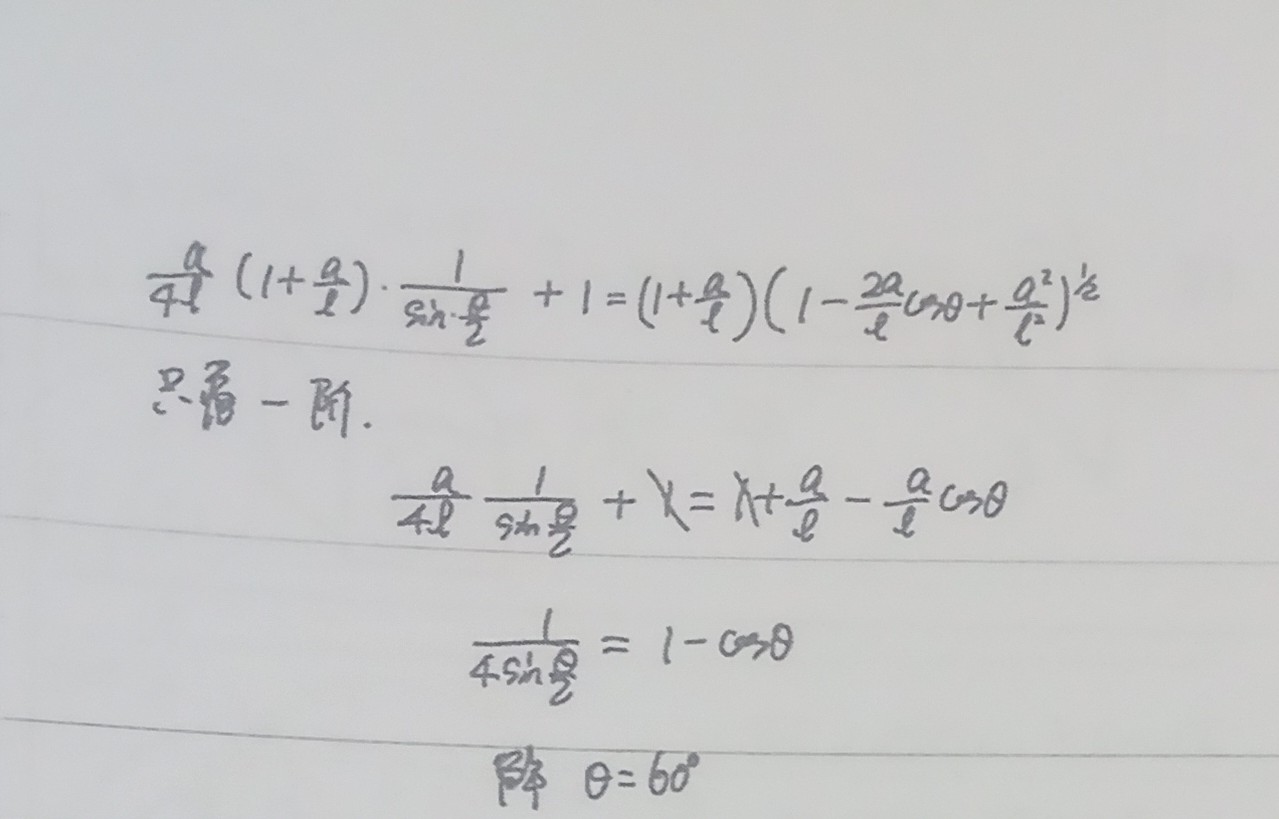 a/4l (1+a/l)·1/(sin·θ/2) + 1 = (1+a/l)(1 - 2a/l cosθ + a²/l²)^½
只看一阶.
a/4l 1/(sin θ/2) + 1 = 1 + a/l - a/l cosθ
1/(4 sin θ/2) = 1 - cosθ
θ = 60°